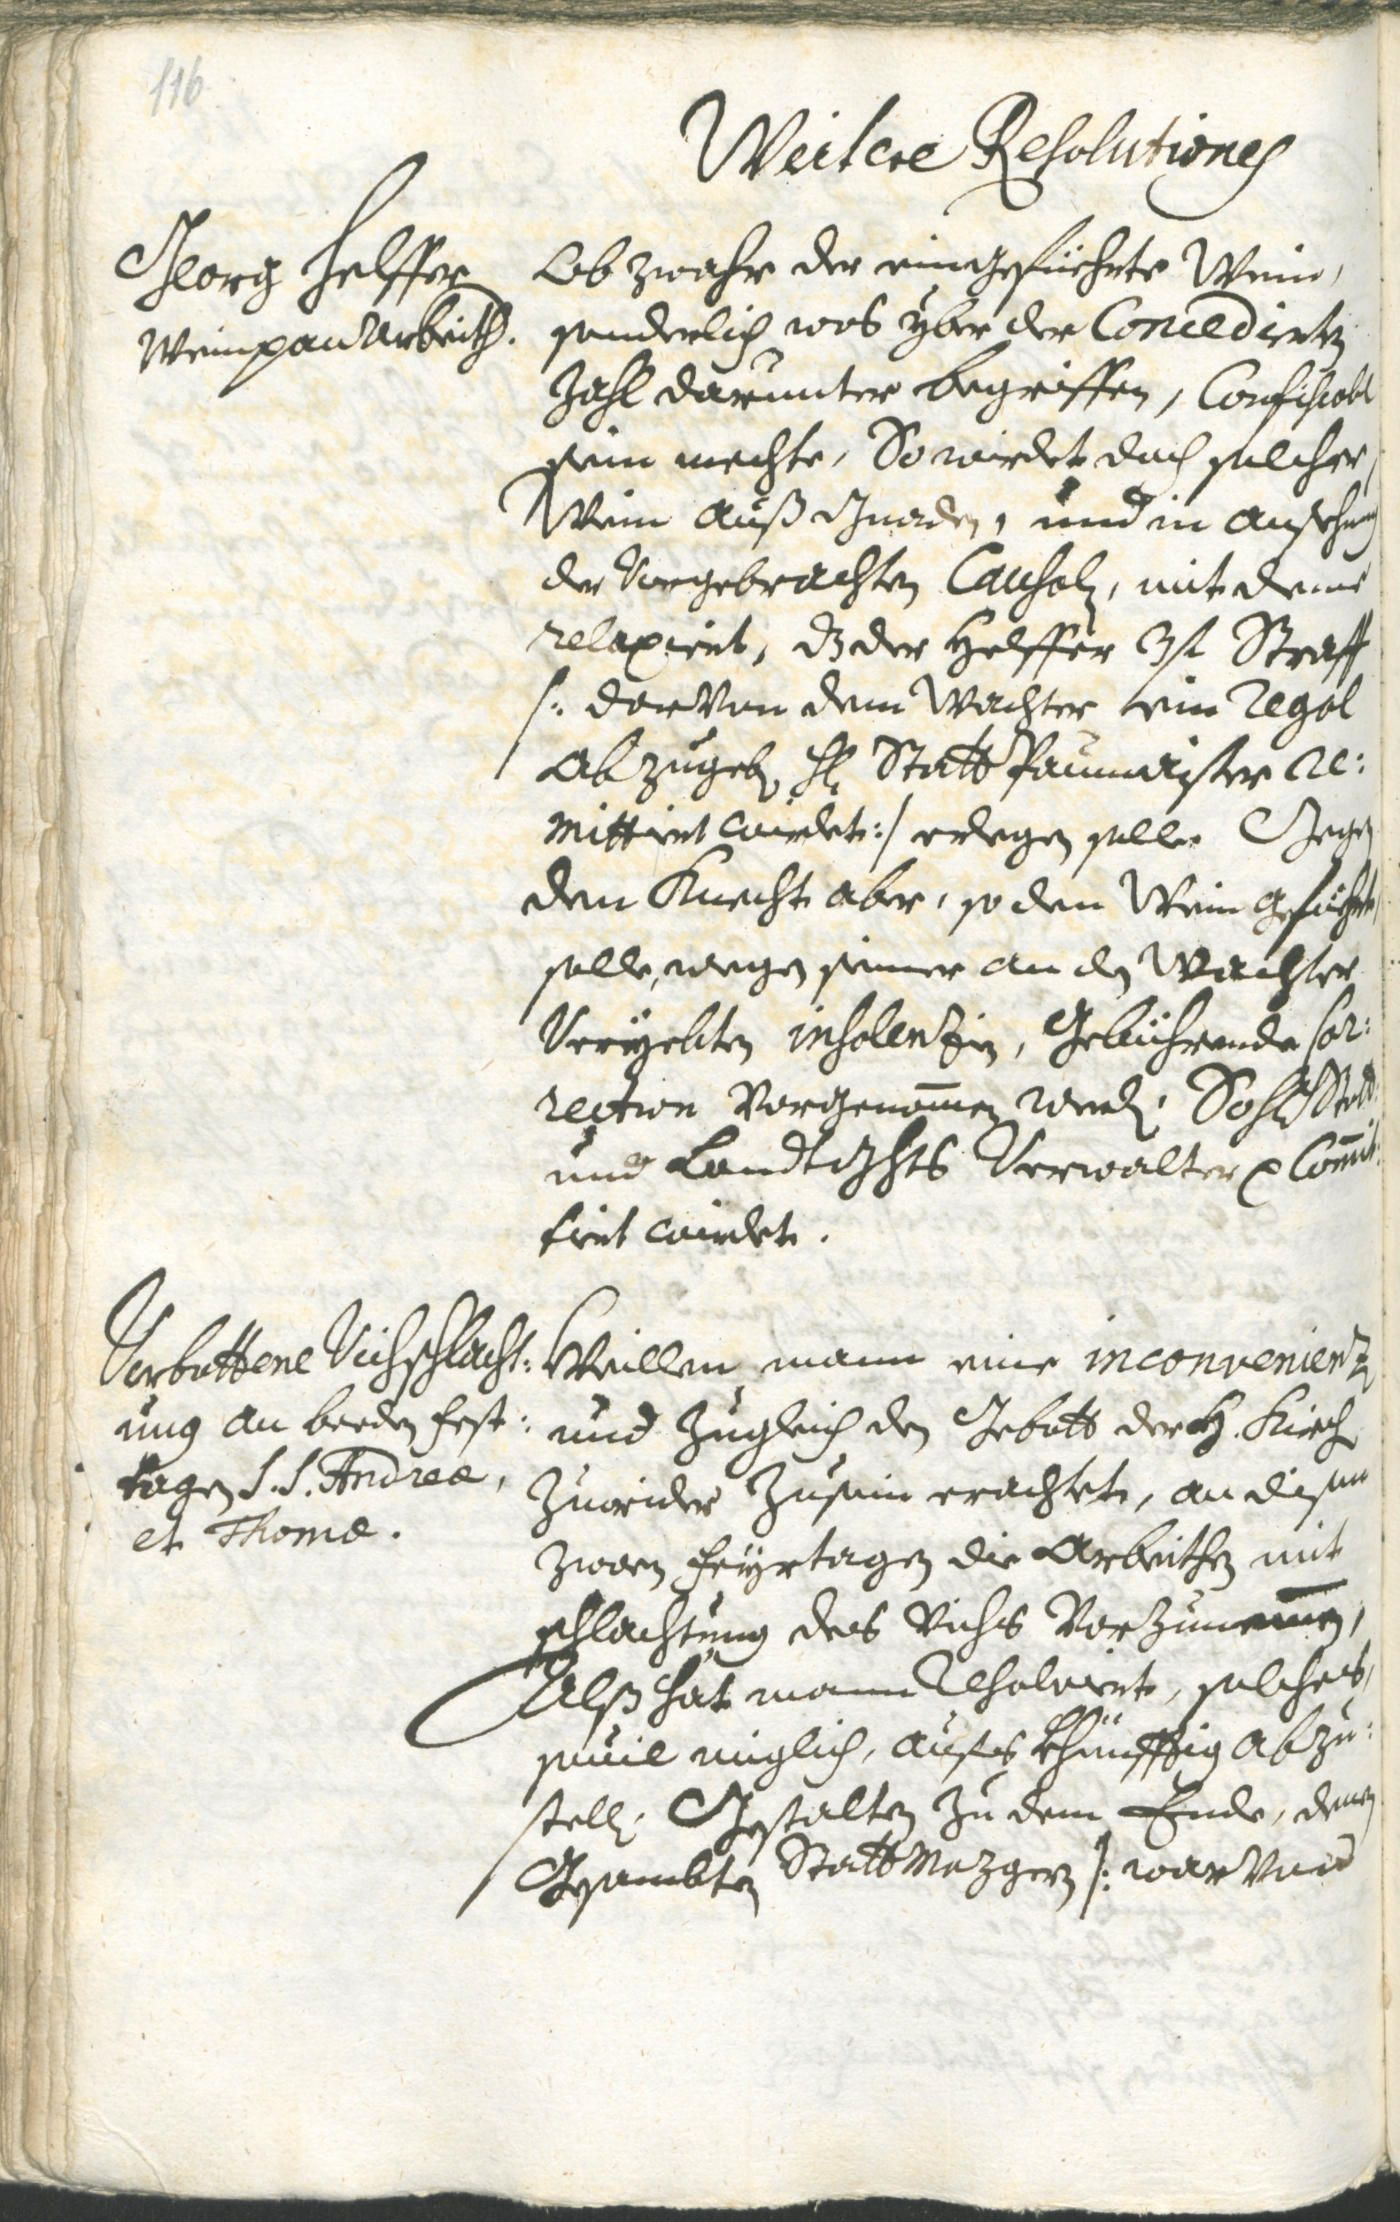 116
Weitere Resolutiones
Georg Helffer
Weinpau Arbeith.
Ob zwahr der eingefüehrte Wein,
sonderlich was yber der Concedirten
Zahl darunter begriffen, Confiscabl
sein mechte, So wirdet doch solcher
Wein auß Gnaden, und in ansehung
der Vorgebrachten Causalen, mit deme
relaxirt, dz der Helffer 3 fl Straff
/: darVon dem Wachter ein Regal
abzugeben H: Statt Paumaister re:
mittirt wirdet :/ erlegen solle. Gegen
dem Knecht aber, so den Wein gefüehrt,
solle, wegen seiner an den Wachter
Veryebten insolentien, Gebührende Cor:
rection Vorgenommen werden: So H Statt:
und Landtrichts Verwalter p Commit:
tirt wirdet.
Verbottene Vichschlacht:
ung an beeden fest:
tagen S. S. Andreæ,
et Thomæ.
Weillen mann eine inconvenienz
und zugleich den Gebott der H. Kirch
zuwider zusein erachtet, an disen
zween feyrtagen die Arbeithen mit
schlachtung des Vichs Vorzunemmen,
Alß hat mann Resolvirt, solches,
souil miglich, aufs khünfftig abzu:
stellen. Gestalten zu dem Ende, denen
Gesambten Statt Mezgern /: warVon